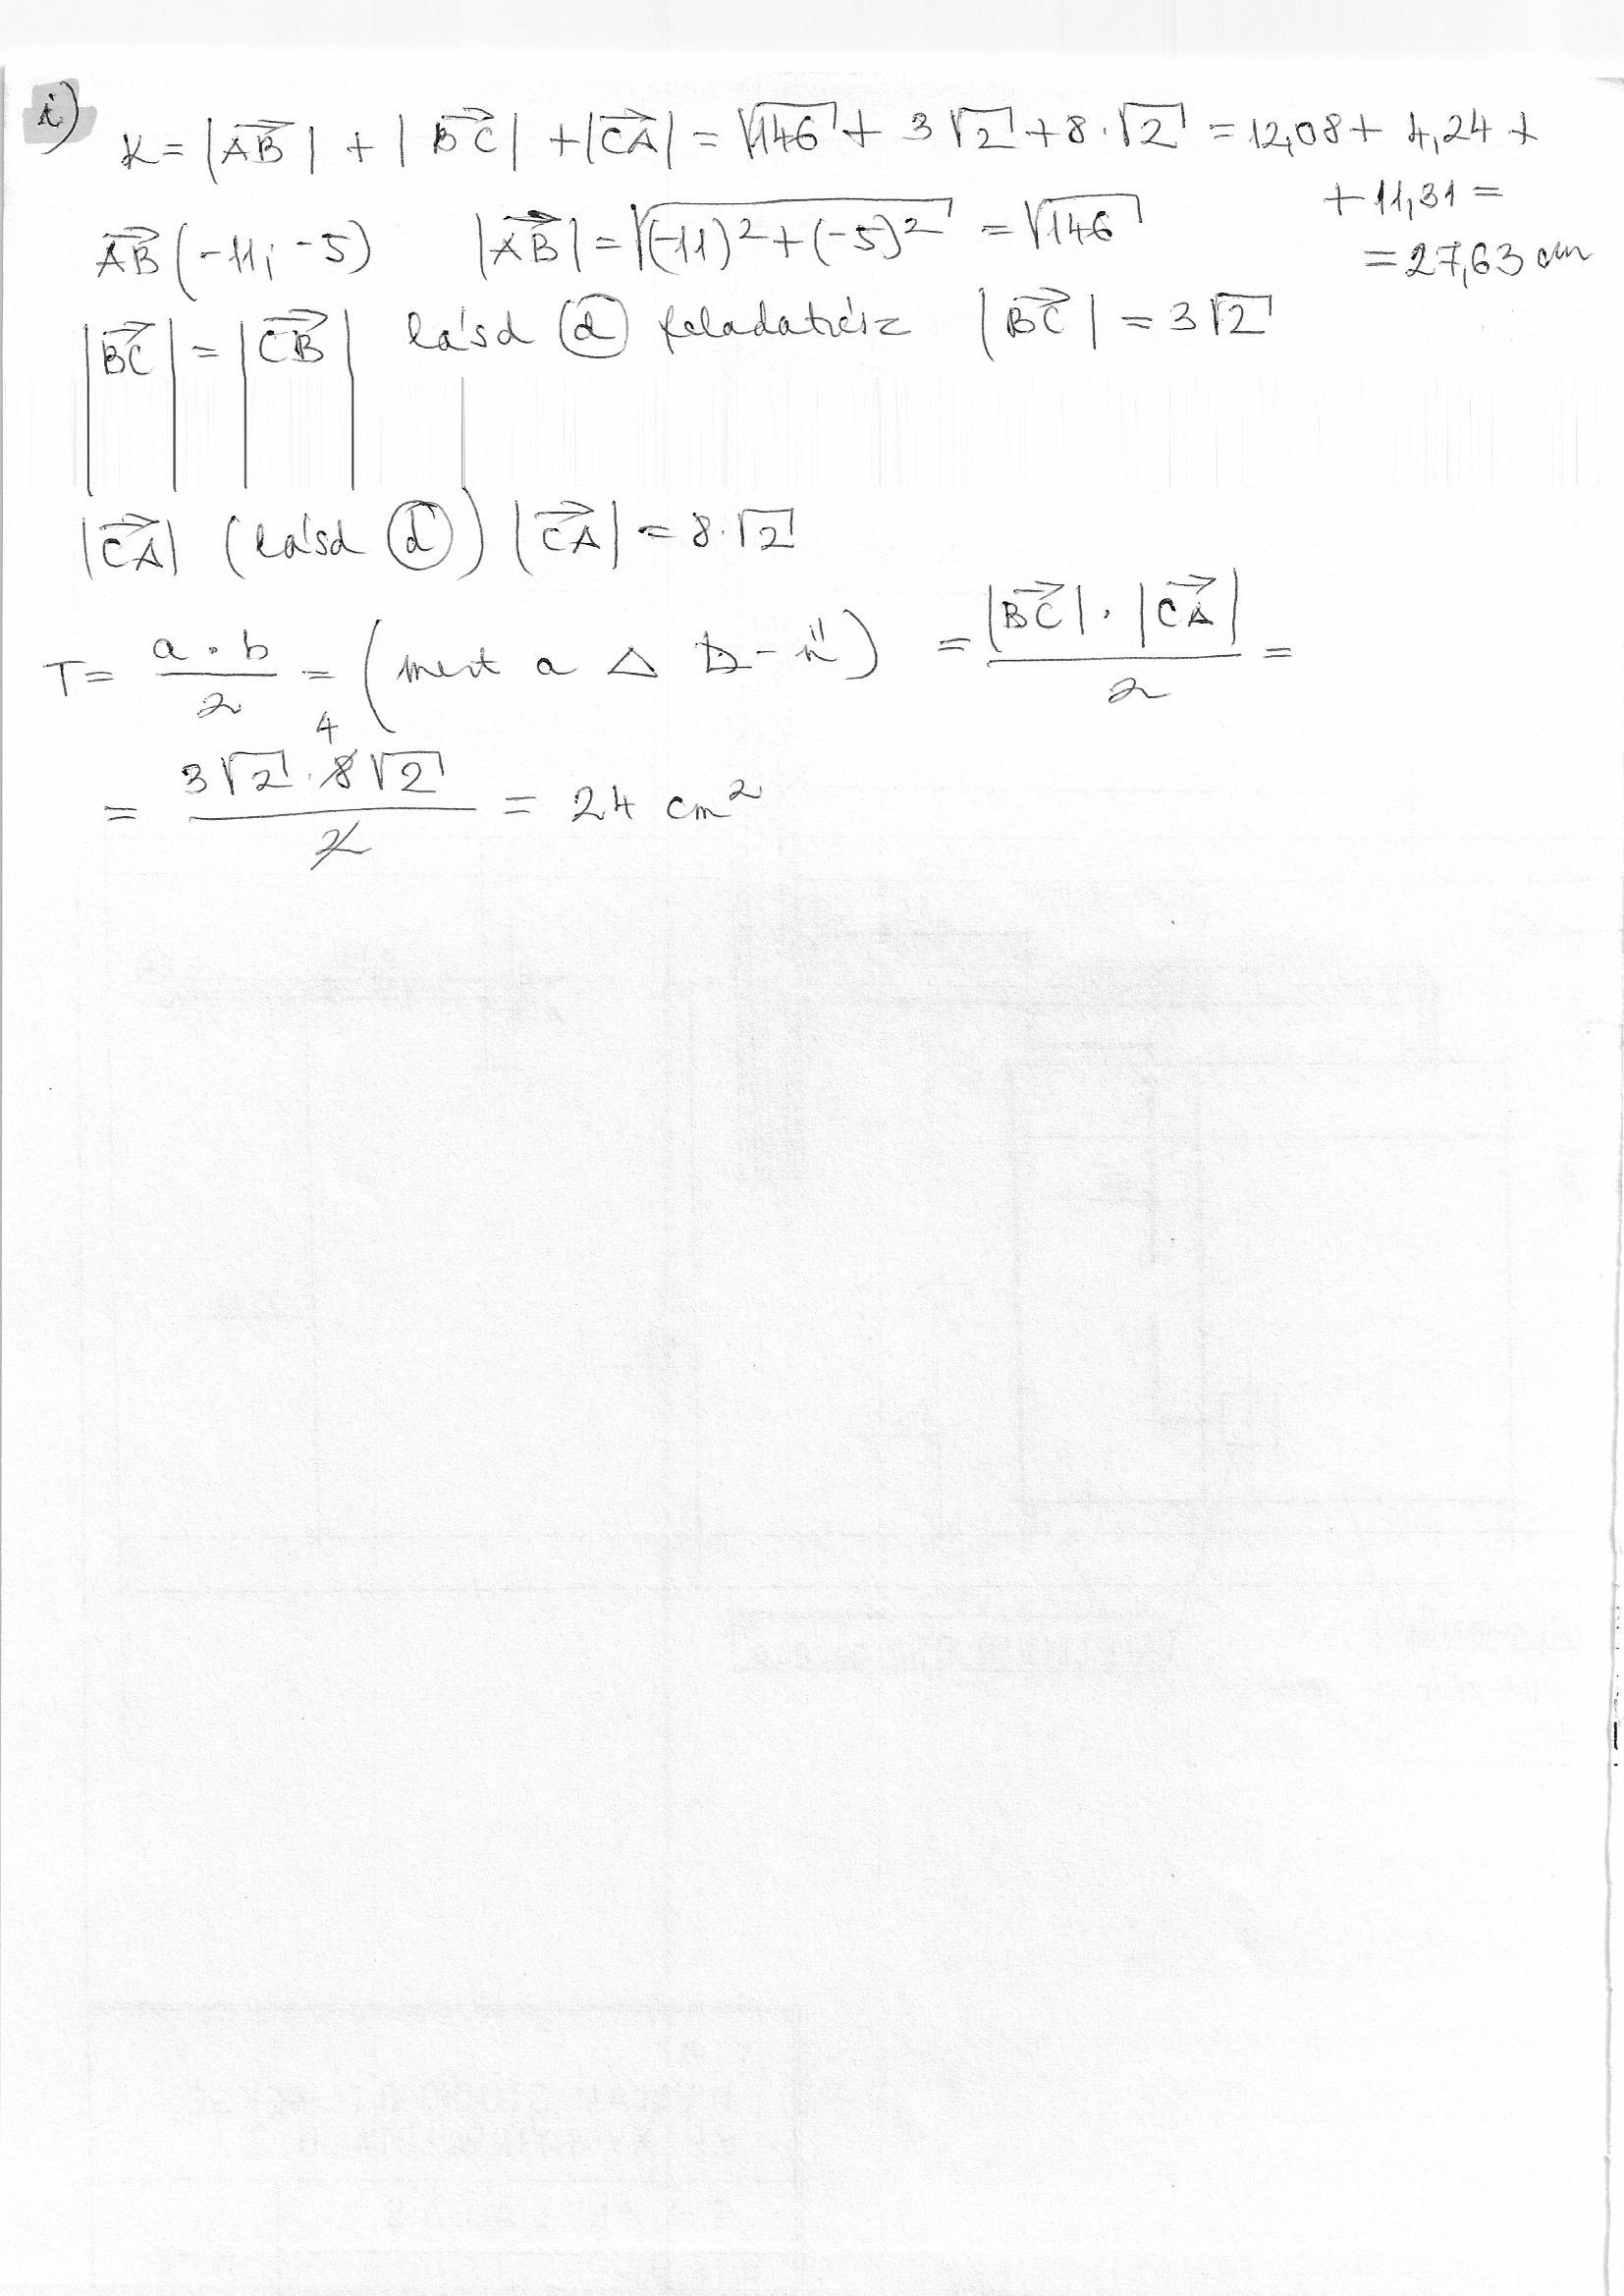 i) K = |AB→| + |BC→| + |CA→| = √146 + 3√2 + 8·√2 = 12,08 + 4,24 +
+ 11,31 =
= 27,63 cm
AB→ (-11; -5) |AB→| = √((-11)² + (-5)²) = √146
|BC→| = |CB→| lásd (d) feladatrész |BC→| = 3√2
|CA→| (lásd (d)) |CA→| = 8·√2
T = a·b/2 = (mert a △ D-ű) = |BC→|·|CA→|/2 =
= 3√2·8√2/2 = 24 cm²
4